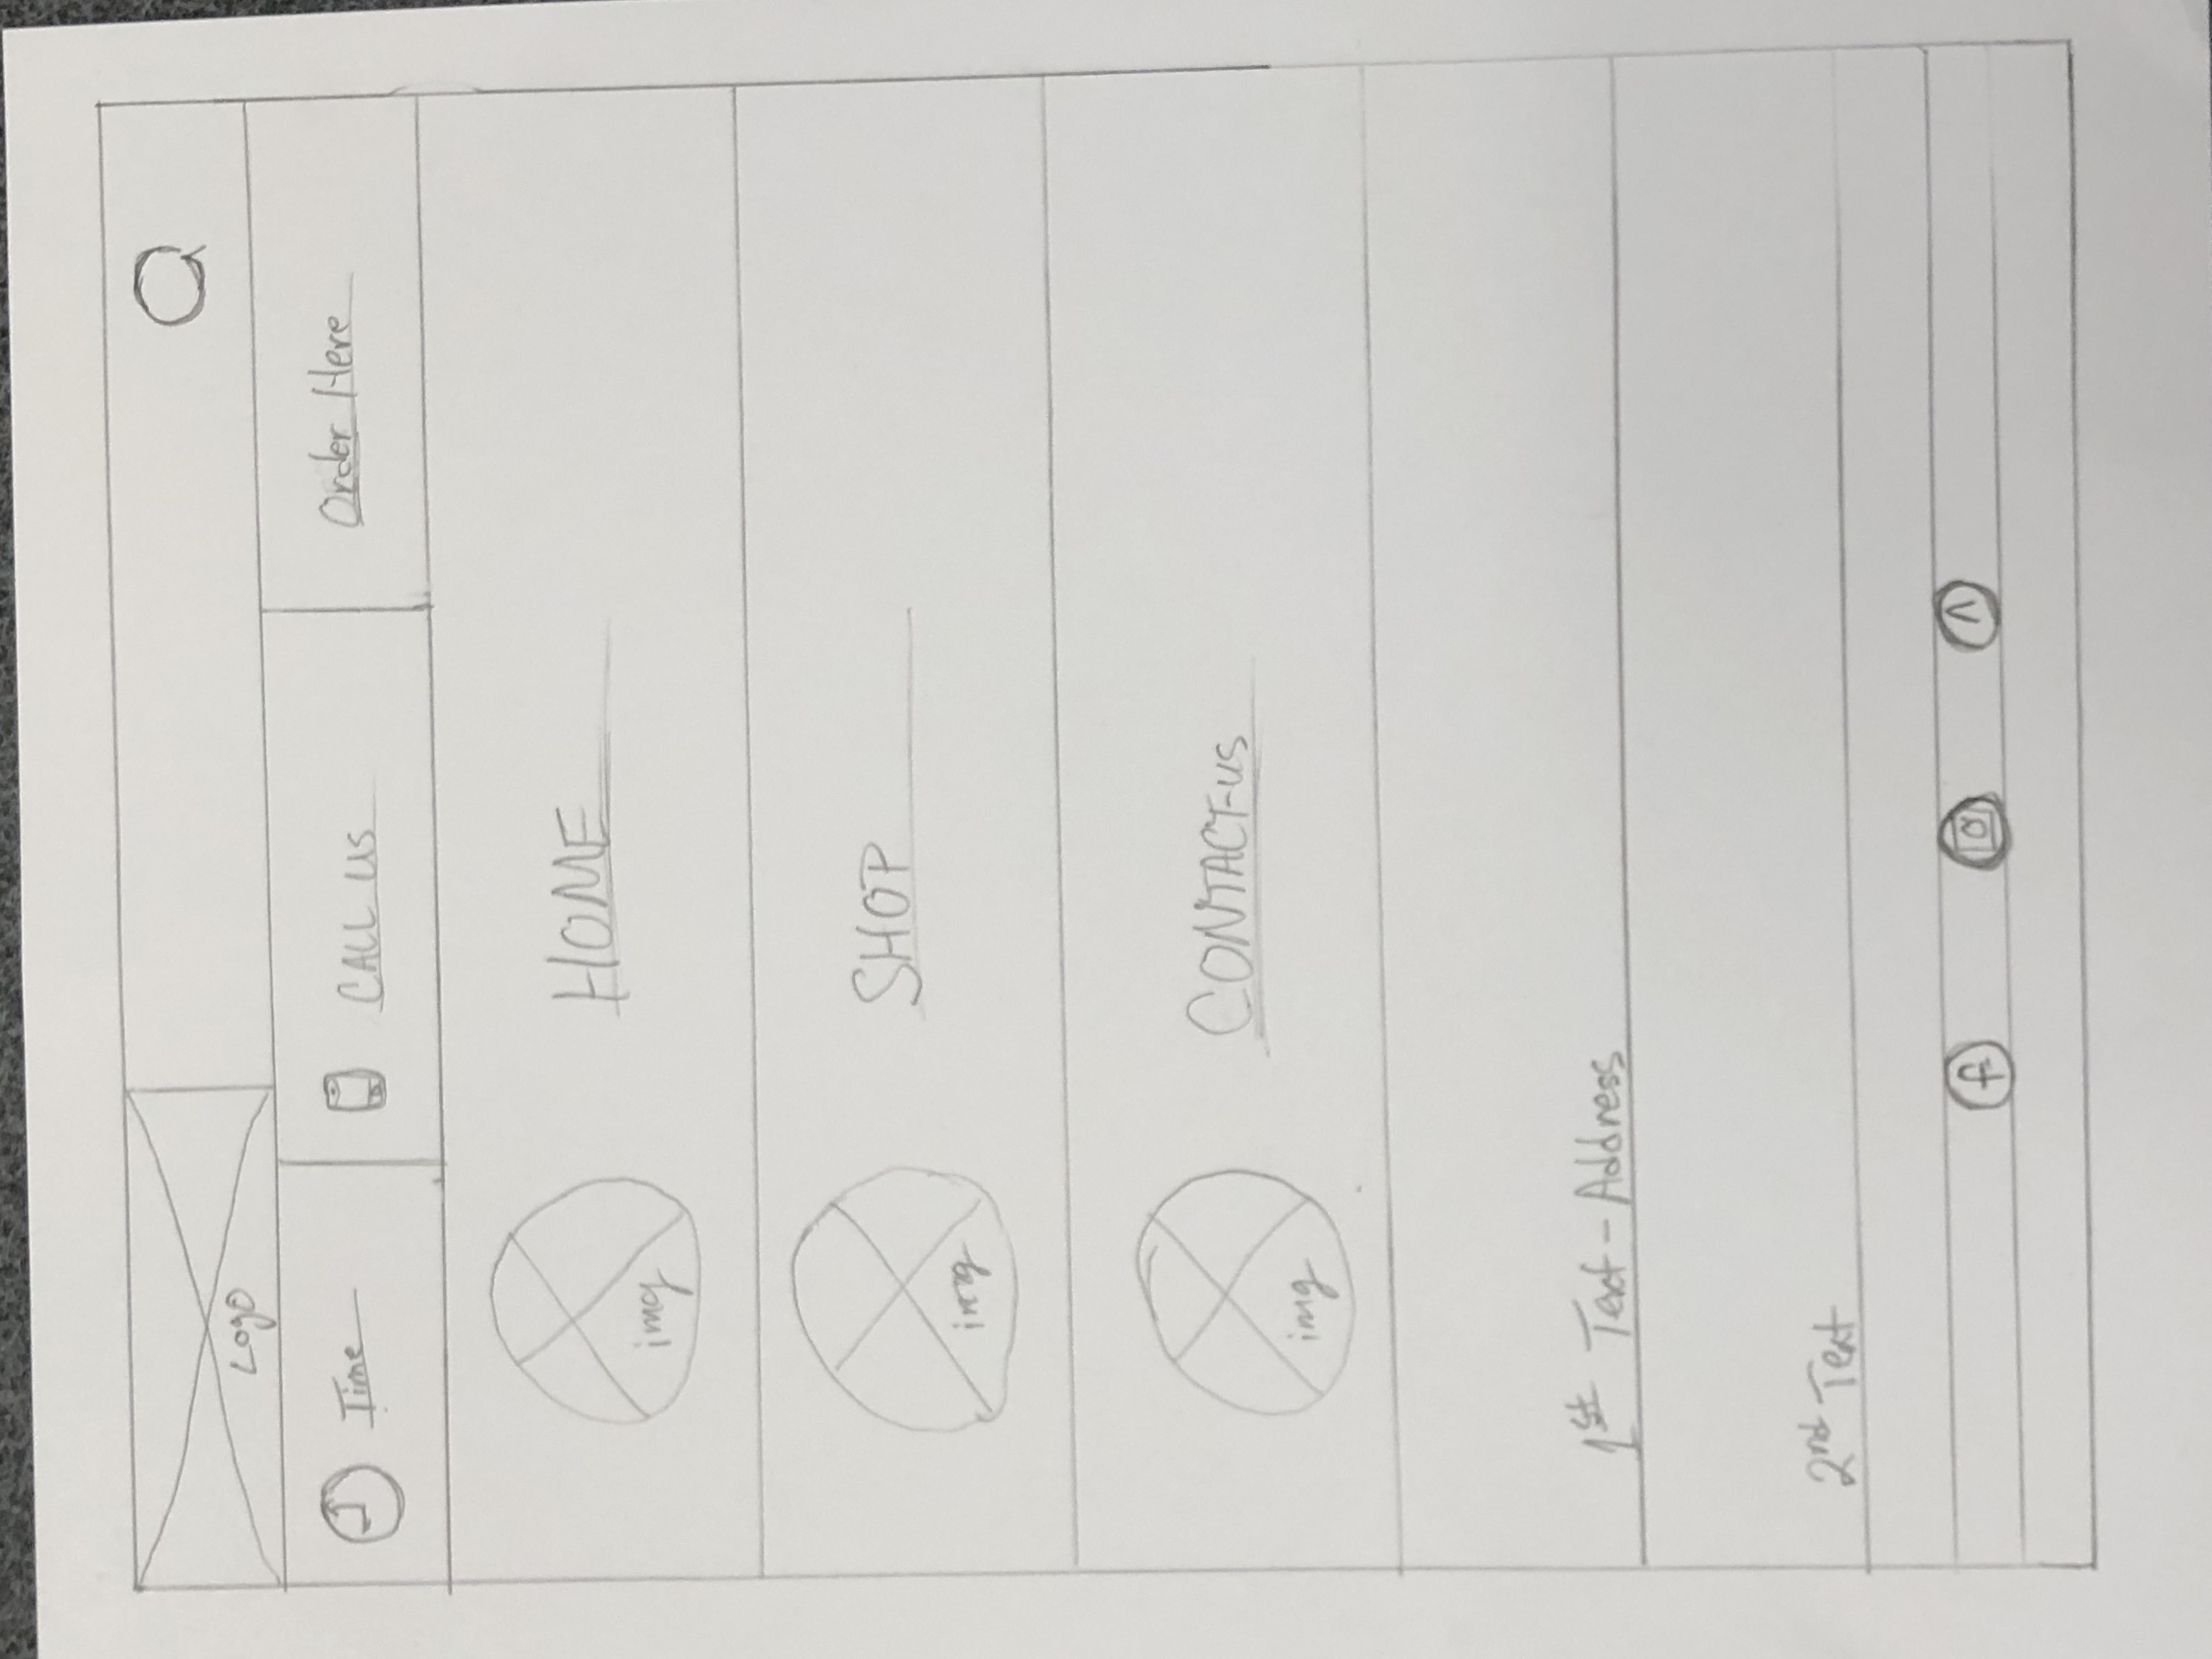 Logo
Time
CALL US
Order Here
HOME
img
SHOP
img
CONTACT-US
img
1st Text - Address
2nd Text
f